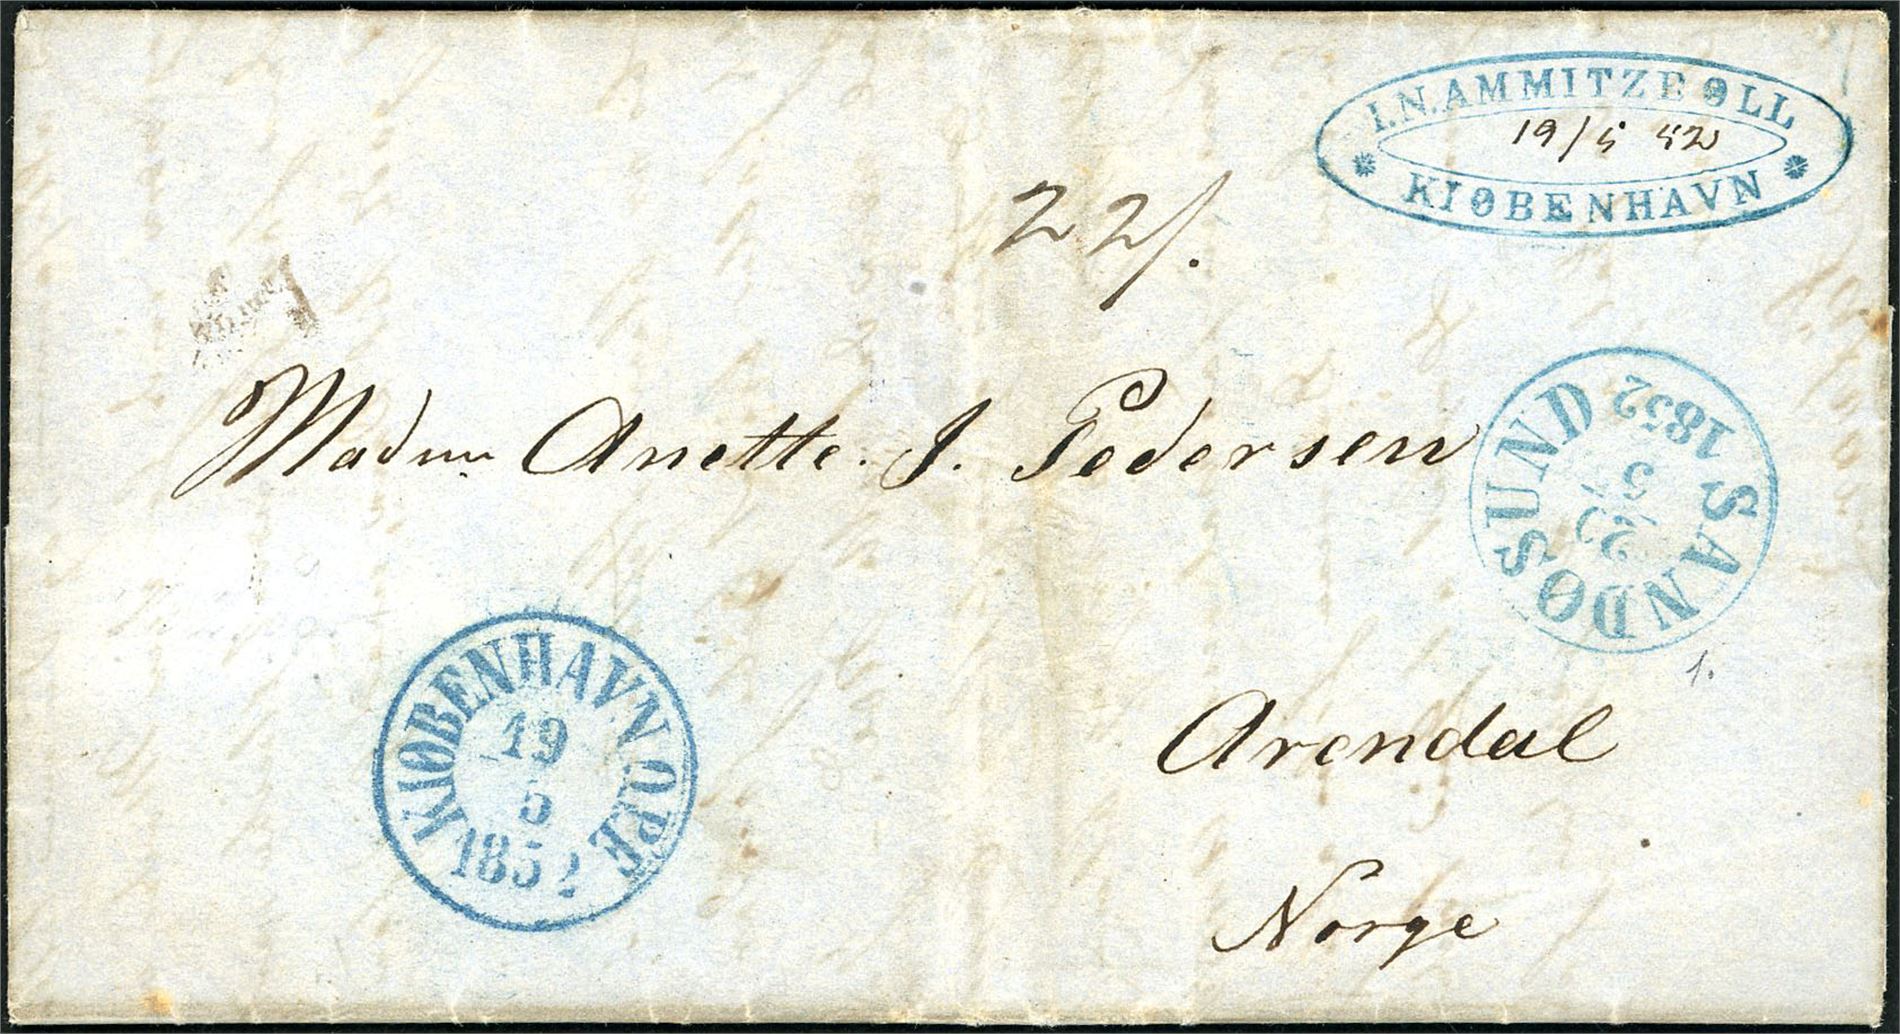 I.N. AMMITZBØLL
19/5 52
KIØBENHAVN
22/.
Madm Anette. J. Pedersen
SANDØSUND
22
5
1852
1.
KIØBENHAVN OPE
19
5
1852
Arendal
Norge